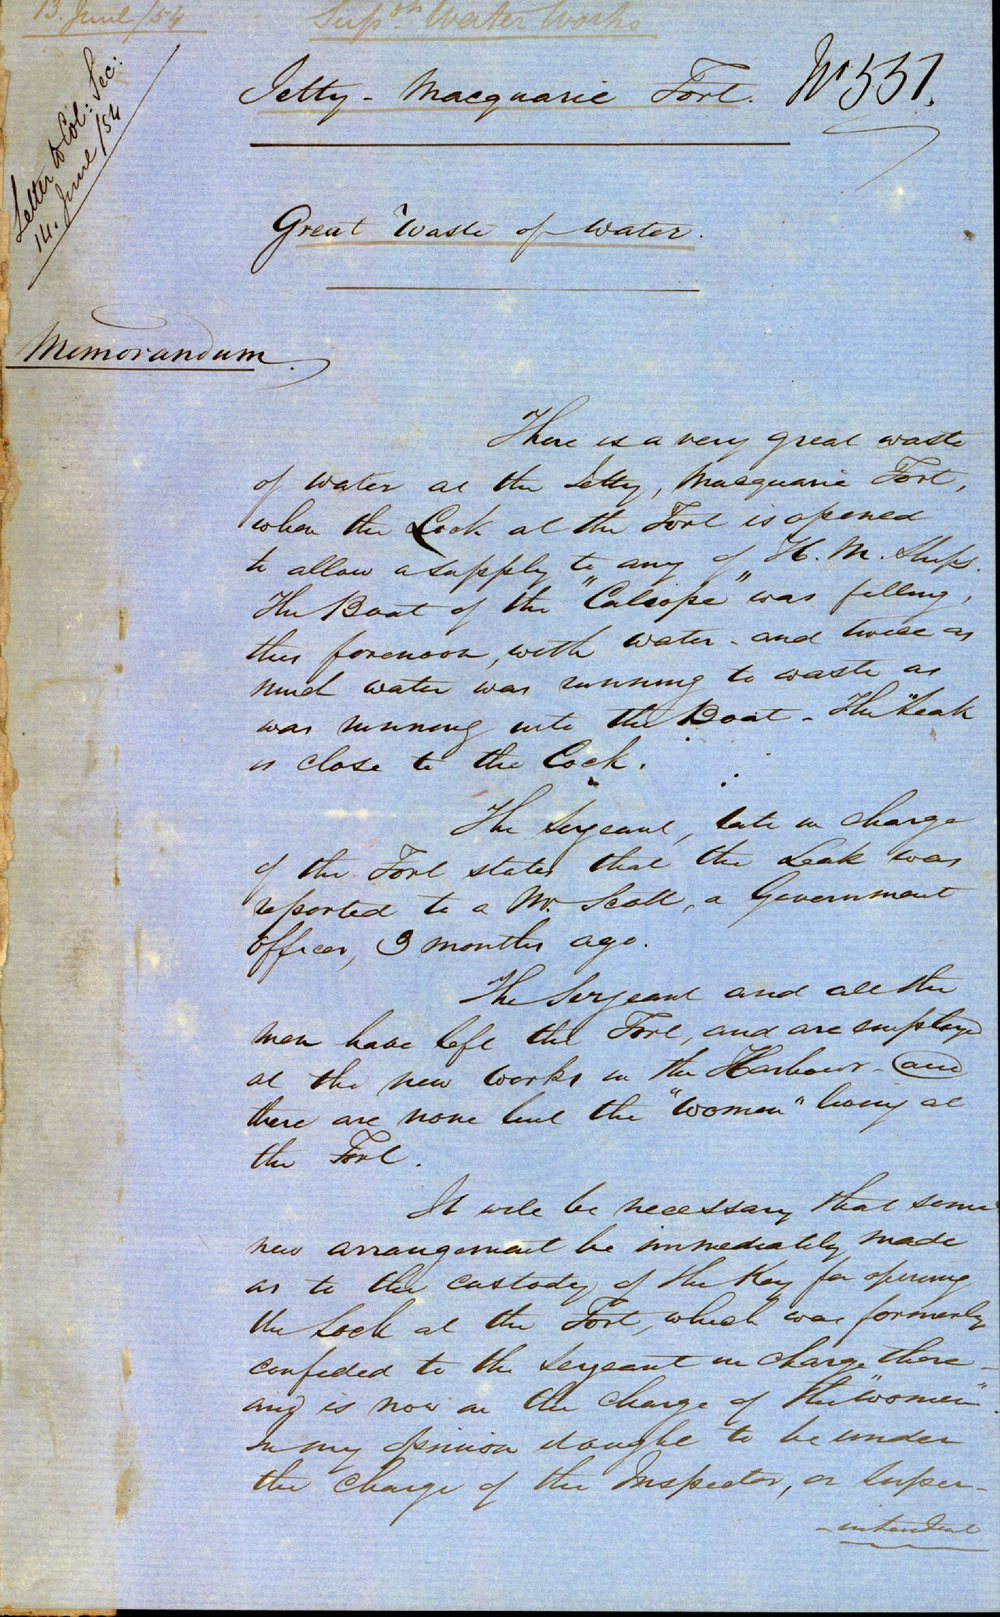 13. June /54
Sup.dt Water Works
Letter to Col: Sec:
14. June /54
Jetty - Macquarie Fort. No 551.
Great Waste of Water.
Memorandum.
There is a very great waste
of water at the Jetty, Macquarie Fort,
when the Cock at the Fort is opened
to allow a supply to any of H. M. Ships.
The Boat of the "Caliope" was filling,
this forenoon, with water - and twice as
much water was running to waste as
was running into the Boat - The "Leak
is close to the Cock.
The Sergeant, late in charge
of the Fort states that the Leak was
reported to a Mr. Scott, a Government
Officer, 3 months ago.
The Sergeant and all the
men have left the Fort, and are employed
at the new works in the Harbour - and
there are none but the "Women" living at
the Fort.
It will be necessary that some
new arrangement be immediately made
as to the custody of the Key for opening
the Cock at the Fort, which was formerly
confided to the Sergeant in charge there -
and is now in the charge of the "women"
In my opinion it ought to be under
the charge of the Inspector, or Super-
-intendent